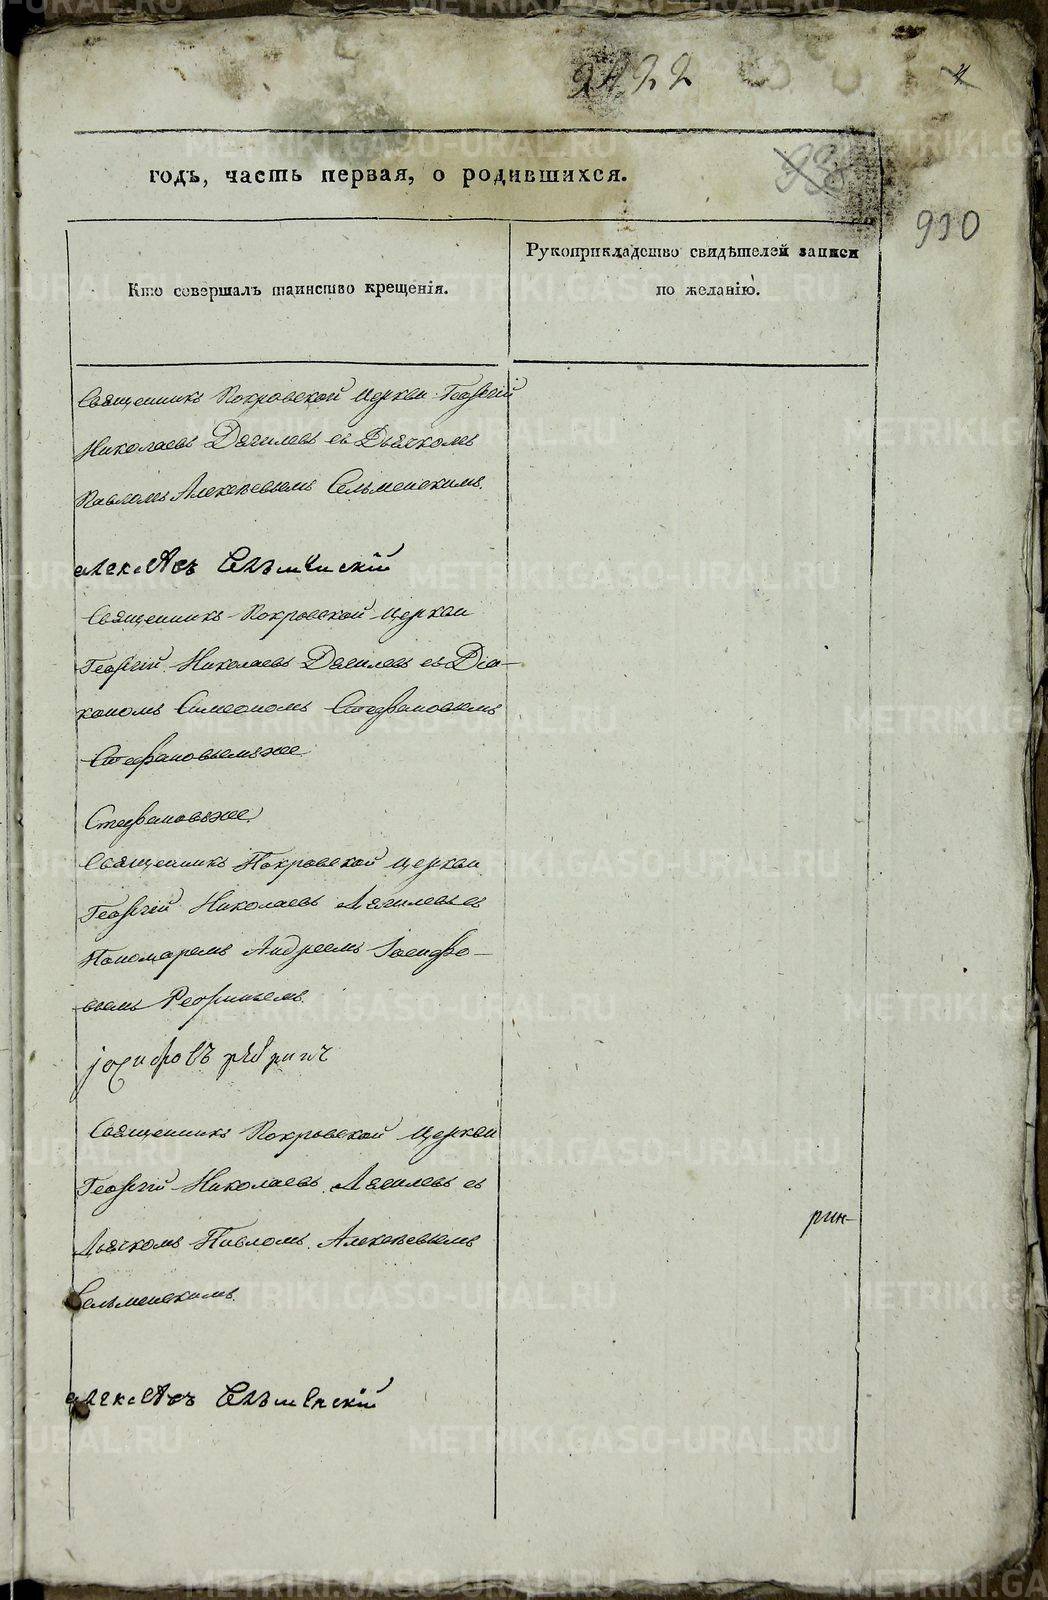 2422
4
годъ, часть первая, о родившихся.
938
910
Кто совершалъ таинство крещенія.
Рукоприкладство свидѣтелей записи
по желанію.
Священникъ Покровской церкви Георгій
Николаевъ Дягилевъ съ Дьячкомъ
Павломъ Алексѣевымъ Сельменскимъ.
алексѣевъ Селъменскій
Священникъ Покровской церкви
Георгій Николаевъ Дягилевъ съ Діа-
кономъ Симеономъ Стефановымъ
Стефановымъже
Стефановъже
Священникъ Покровской церкви
Георгій Николаевъ Дягилевъ съ
Пономаремъ Андреемъ Іосифо-
вымъ
іосифовъ
Священникъ Покровской Церкви
Георгій Николаевъ Дягилевъ съ
Дьячкомъ Павломъ Алексѣевымъ
Сельменскимъ.
рин-
алексѣевъ Селъменскій
METRIKI.GASO-URAL.RU